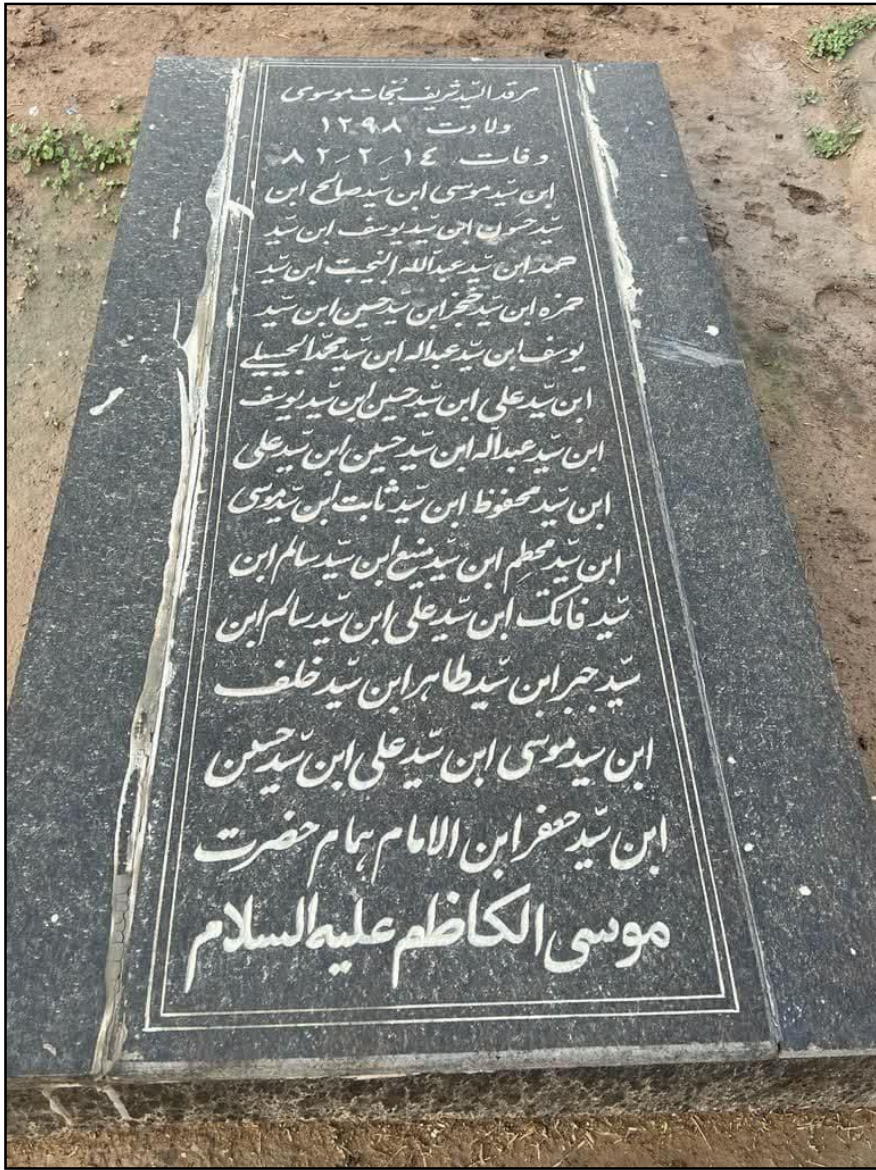 مرقد السّید شریف نجات موسوی
ولادت ١٢٩٨
وفات ١٤-٢-٨٢
ابن سیّد موسی ابن سیّد صالح ابن
سیّد حسون ابن سیّد یوسف ابن سیّد
حمد ابن سیّد عبداللّه النجیب ابن سیّد
حمزه ابن سیّد خنجر ابن سیّد حسین ابن سیّد
یوسف ابن سیّد عبداله ابن سیّد محمّد
ابن سیّد علی ابن سیّد حسین ابن سیّد یوسف
ابن سیّد عبداله ابن سیّد حسین ابن سیّد علی
ابن سیّد محفوظ ابن سیّد ثابت ابن سیّد موسی
ابن سیّد محطم ابن سیّد منیع ابن سیّد سالم ابن
سیّد فاتک ابن سیّد علی ابن سیّد سالم ابن
سیّد جبر ابن سیّد طاهر ابن سیّد خلف
ابن سید موسی ابن سیّد علی ابن سیّد حسین
ابن سیّد جعفر ابن الامام همام حضرت
موسی الکاظم علیه السلام